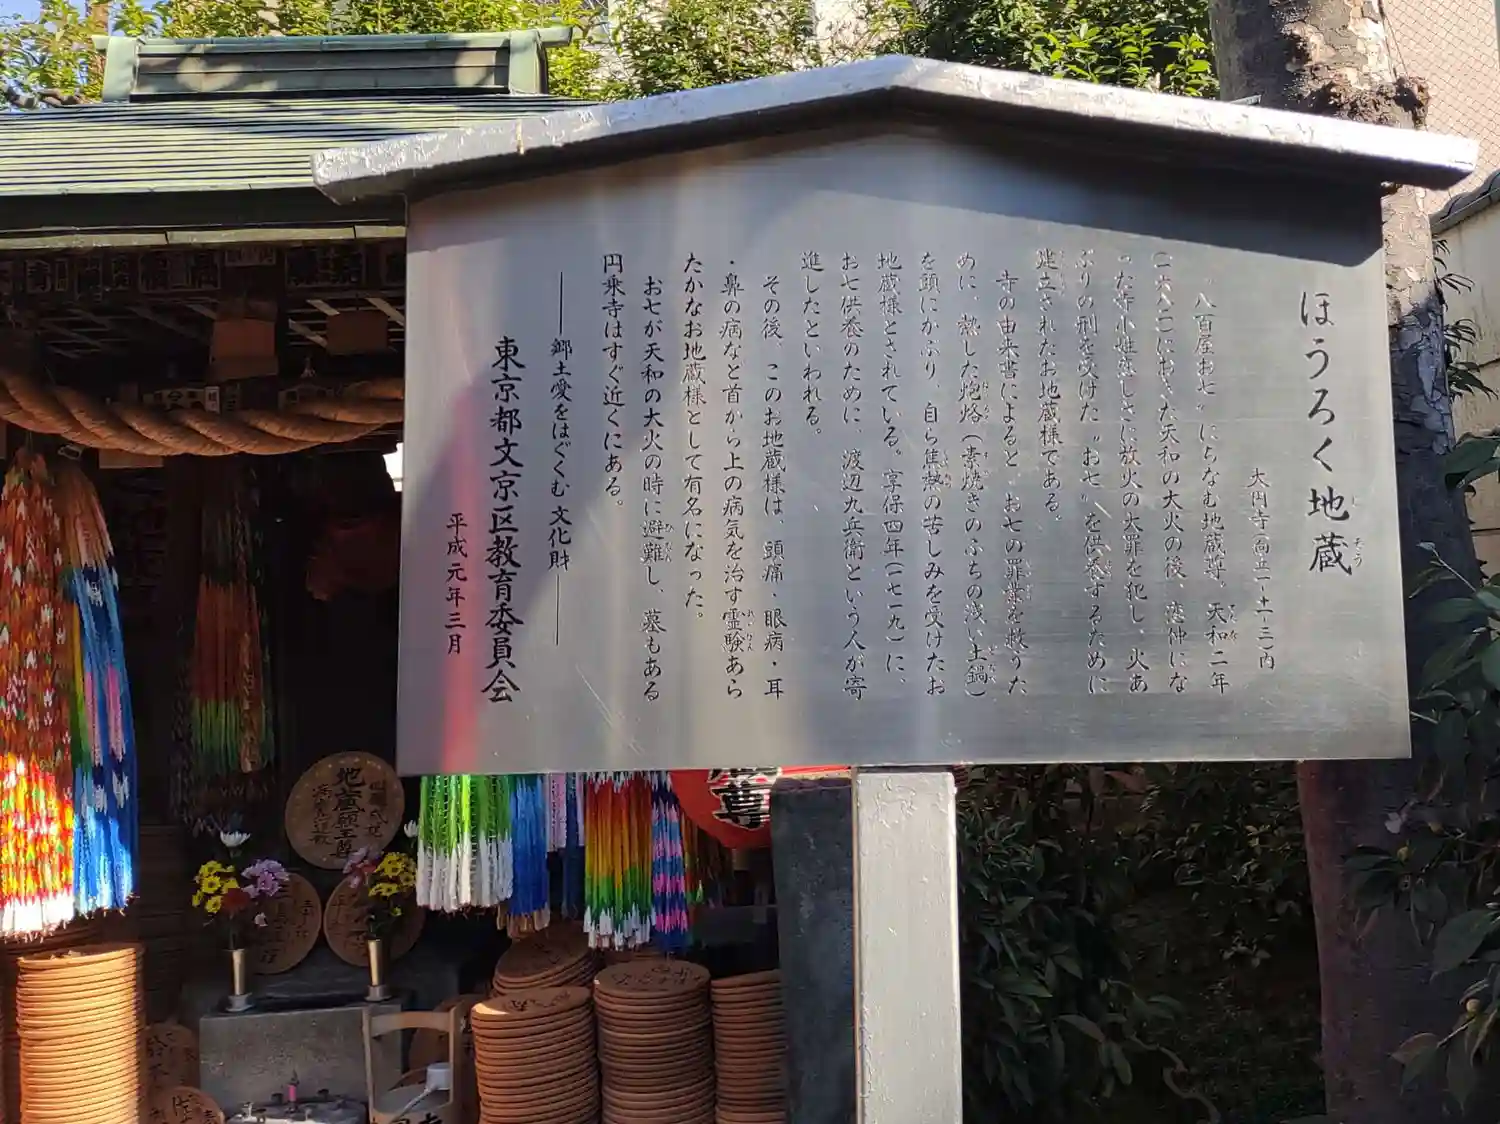 ほうろく地蔵
大円寺(向丘一-十一-三)内
“八百屋お七”にちなむ地蔵尊。天和二年
(一六八二)におきた天和の大火の後、恋仲にな
った寺小姓恋しさに放火の大罪を犯し、火あ
ぶりの刑を受けた“お七”を供養するために
建立されたお地蔵様である。
寺の由来書によると、お七の罪業を救うた
めに、熱した炮烙(素焼きのふちの浅い土鍋)
を頭にかぶり、自ら焦熱の苦しみを受けたお
地蔵様とされている。享保四年(一七一九)に、
お七供養のために、渡辺九兵衛という人が寄
進したといわれる。
その後、このお地蔵様は、頭痛・眼病・耳
・鼻の病など首から上の病気を治す霊験あら
たかなお地蔵様として有名になった。
お七が天和の大火の時に避難し、墓もある
円乗寺はすぐ近くにある。
――郷土愛をはぐくむ文化財――
東京都文京区教育委員会
平成元年三月
地蔵願王尊